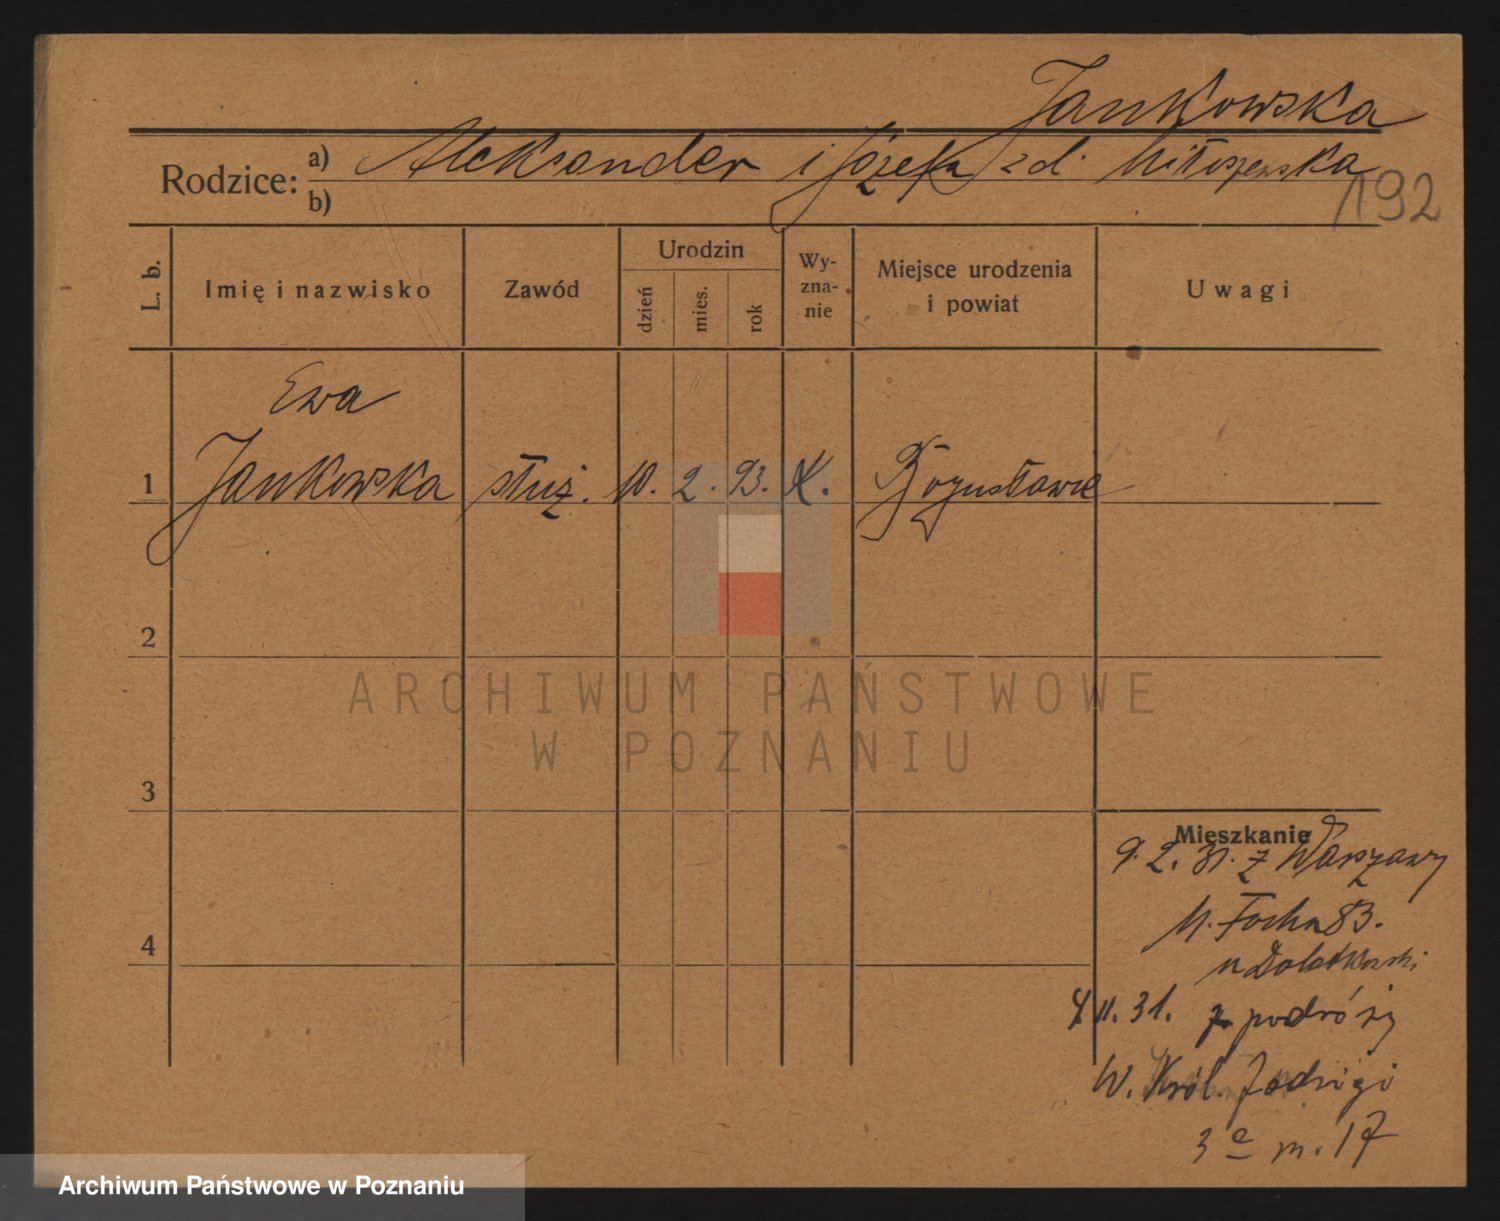 Jankowska
Rodzice: a) Aleksander i Józefa zd. Miłoszewska
b)
192
L. b.
Imię i nazwisko
Zawód
Urodzin
dzień
mies.
rok
Wy-
zna-
nie
Miejsce urodzenia
i powiat
Uwagi
Ewa
1 Jankowska służ. 10. 2. 93. K. Bogusławie
2
ARCHIWUM PAŃSTWOWE
W POZNANIU
3
Mieszkanie
9. 2. 31. z Warszawy
M. Focha 83.
u Dolatkowski
11. 31. z podróży
W. Król. Jadwigi
3a m. 17
4
Archiwum Państwowe w Poznaniu